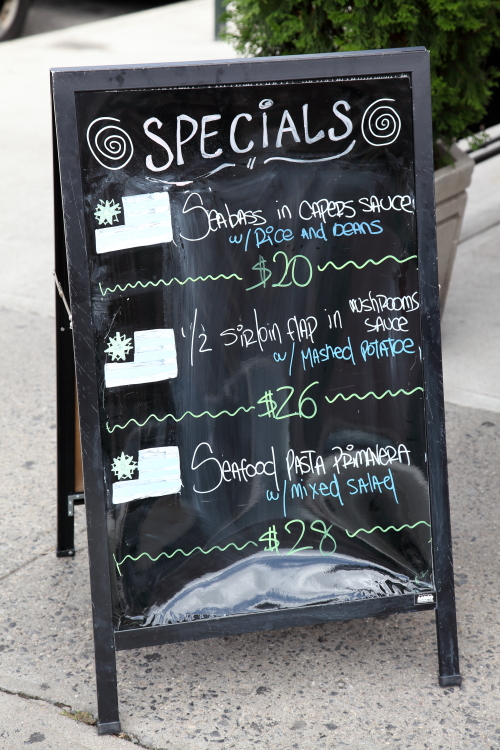 SPECIALS
Seabass in CAPERS SAUCE
w/ Rice AND BEANS
$20
1/2 sirloin flap in mushrooms
SAUCE
w/ MASHed POTATOE
$26
Seafood PASTA PRIMAVERA
w/ mixed SALAd
$28